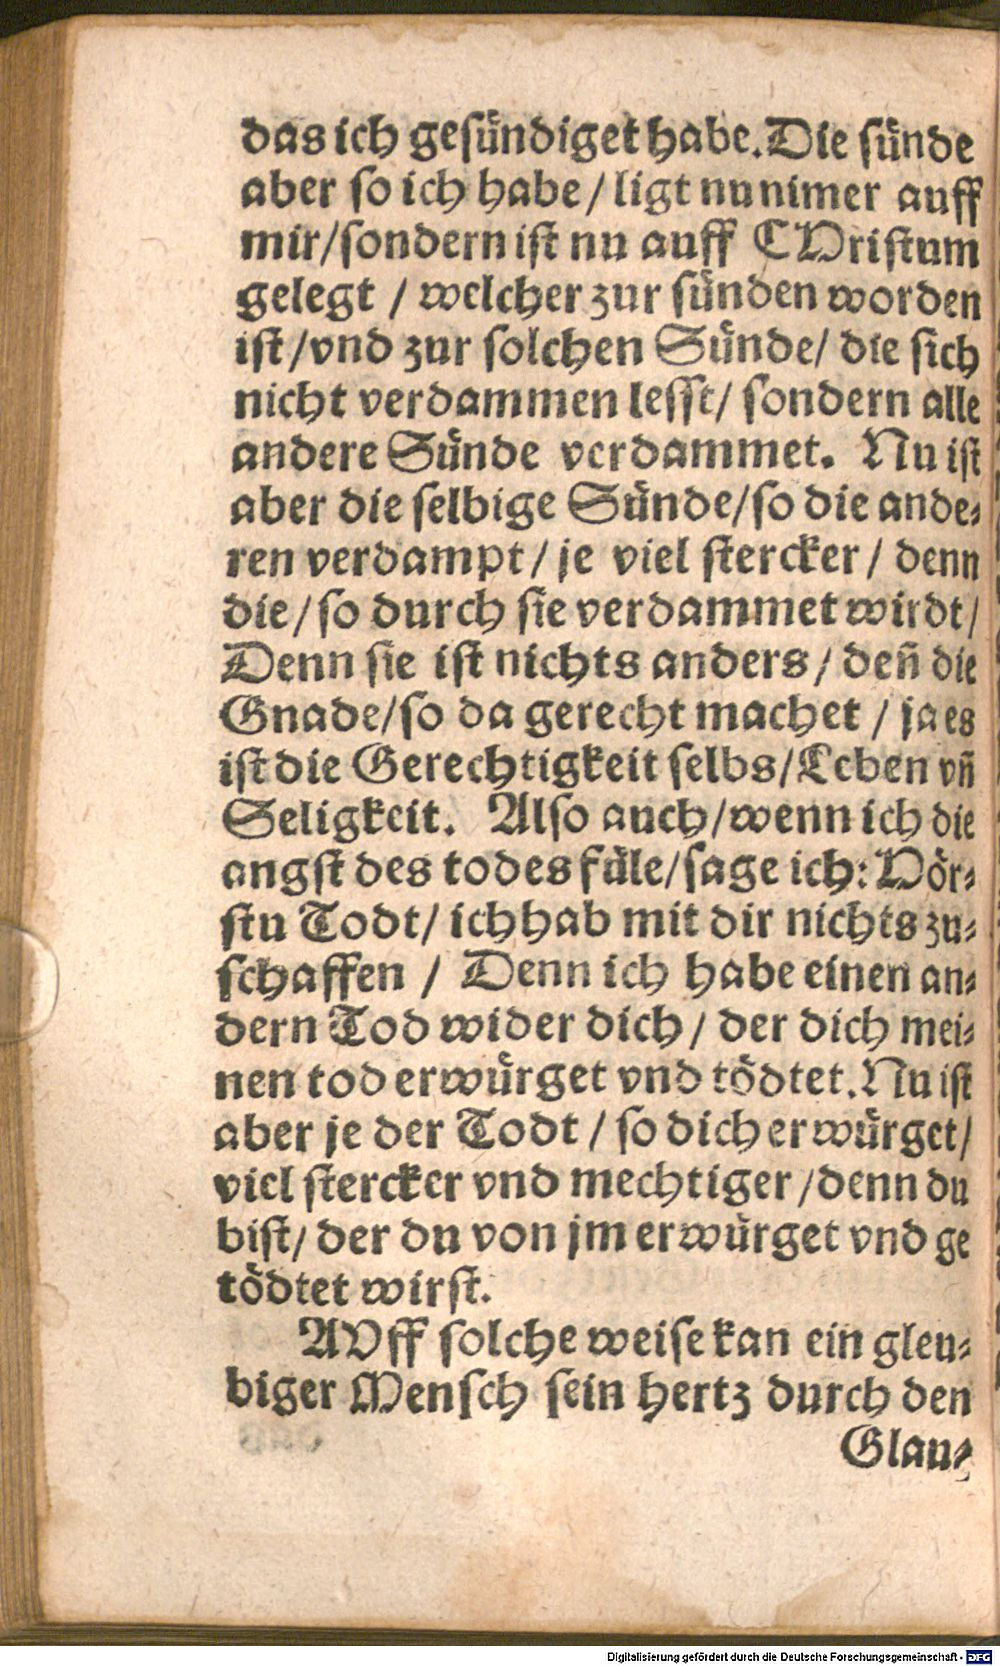 das ich gesündiget habe. Die sünde
aber so ich habe / ligt nu nimer auff
mir/sondern ist nu auff CHristum
gelegt / welcher zur sünden worden
ist/vnd zur solchen Sünde/ die sich
nicht verdammen lesst/ sondern alle
andere Sünde verdammet. Nu ist
aber die selbige Sünde/so die ande⸗
ren verdampt / je viel stercker / denn
die/ so durch sie verdammet wirdt/
Denn sie ist nichts anders / deñ die
Gnade/so da gerecht machet / ja es
ist die Gerechtigkeit selbs/Leben vñ
Seligkeit. Also auch/wenn ich die
angst des todes füle/sage ich: Hör⸗
stu Todt/ ich hab mit dir nichts zu⸗
schaffen / Denn ich habe einen an⸗
dern Tod wider dich / der dich mei⸗
nen tod erwürget vnd tödtet. Nu ist
aber je der Todt / so dich erwürget/
viel stercker vnd mechtiger /denn du
bist/ der du von jm erwürget vnd ge
tödtet wirst.
AVff solche weise kan ein gleu⸗
biger Mensch sein hertz durch den
Glau⸗
Digitalisierung gefördert durch die Deutsche Forschungsgemeinschaft - DFG